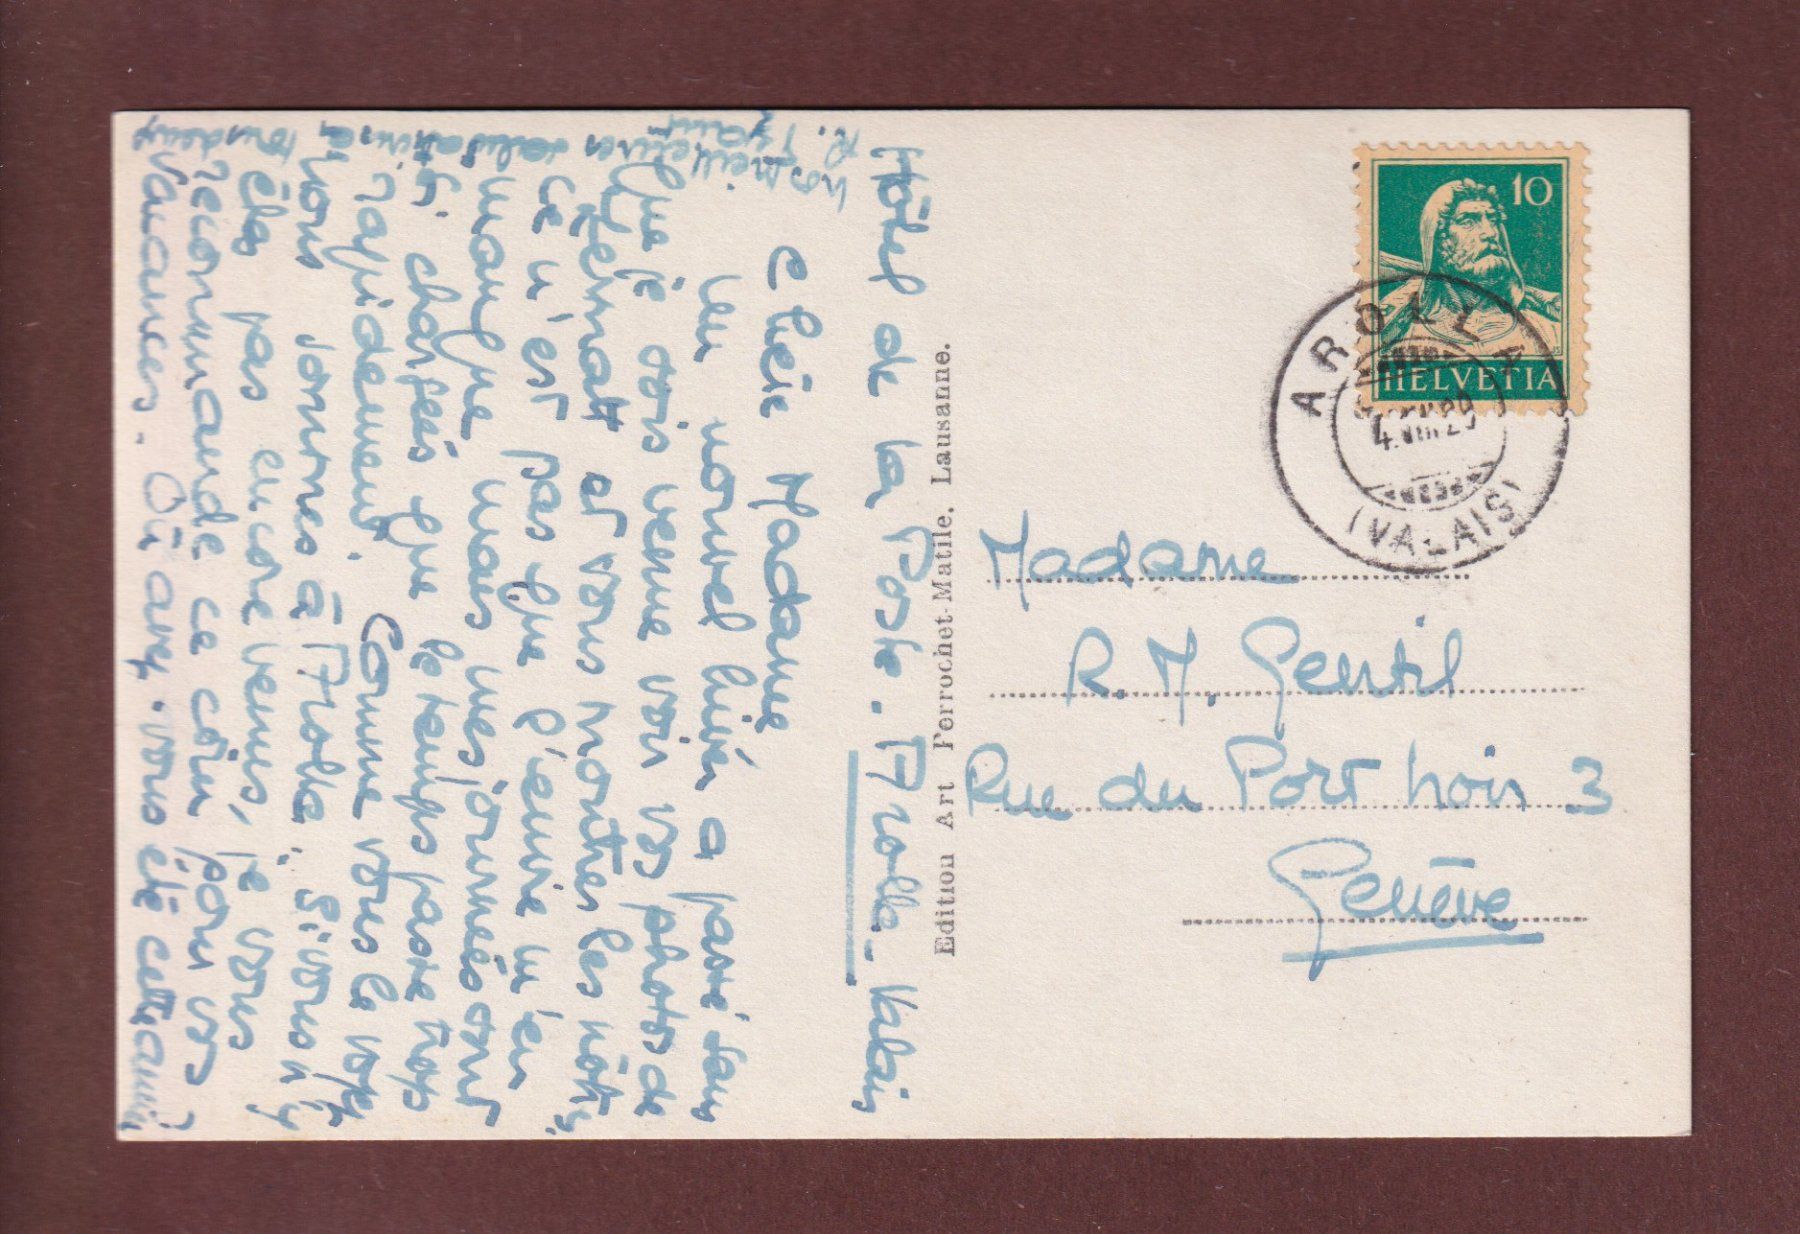 Hôtel de la Poste. Arolla - Valais
Chère Madame
Un nouvel hiver a passé sans
que je sois venue voir vos photos de
Zermatt et vous montrer les nôtres.
Ce n'est pas que l'envie m'en
manque mais mes journées sont
si chargées que le temps passe trop
rapidement.
Comme vous le voyez
nous sommes à Arolla. Si vous n'y
êtes pas encore venus, je vous
recommande ce coin pour vos
vacances. Où avez-vous été cette année?
à tous deux
nos meilleures salutations
R.
Edition Art Perrochet-Matile. Lausanne.
10
HELVETIA
AROLLA
4.VIII.29
(VALAIS)
Madame
R. M. Gentil
Rue du Port noir 3
Genève